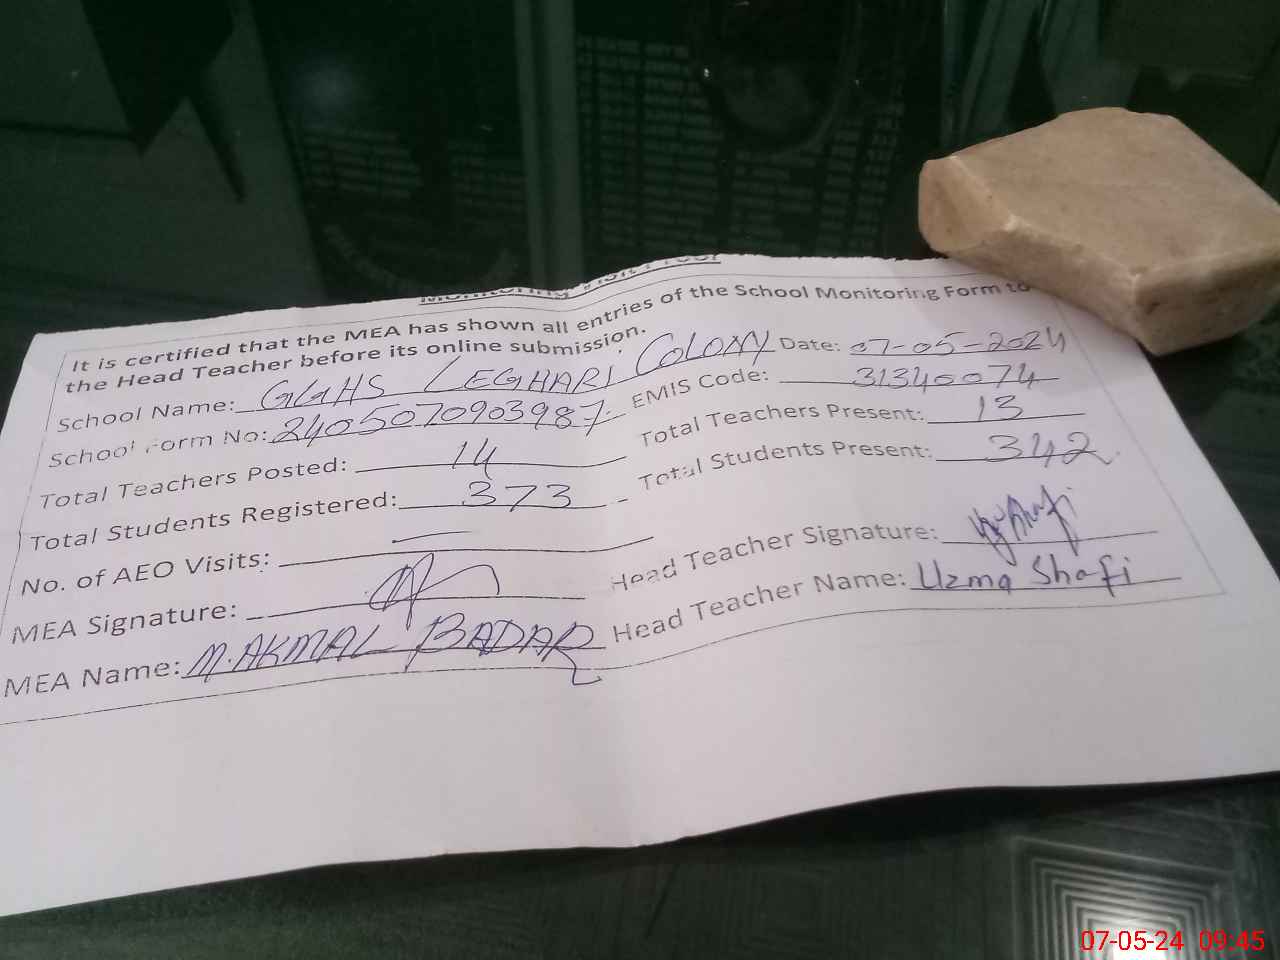 Monitoring Visit Proof
It is certified that the MEA has shown all entries of the School Monitoring Form to
the Head Teacher before its online submission.
School Name: GGHS LEGHARI COLONY Date: 07-05-2024
School Form No: 2405070903987 EMIS Code: 31340074
Total Teachers Posted: 14 Total Teachers Present: 13
Total Students Registered: 373 Total Students Present: 342
No. of AEO Visits: —
MEA Signature: Head Teacher Signature:
MEA Name: M. AKMAL BADAR Head Teacher Name: Uzma Shafi
07-05-24 09:45